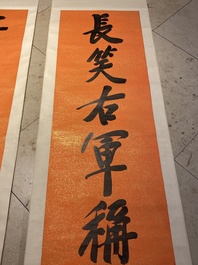 長笑右軍稱